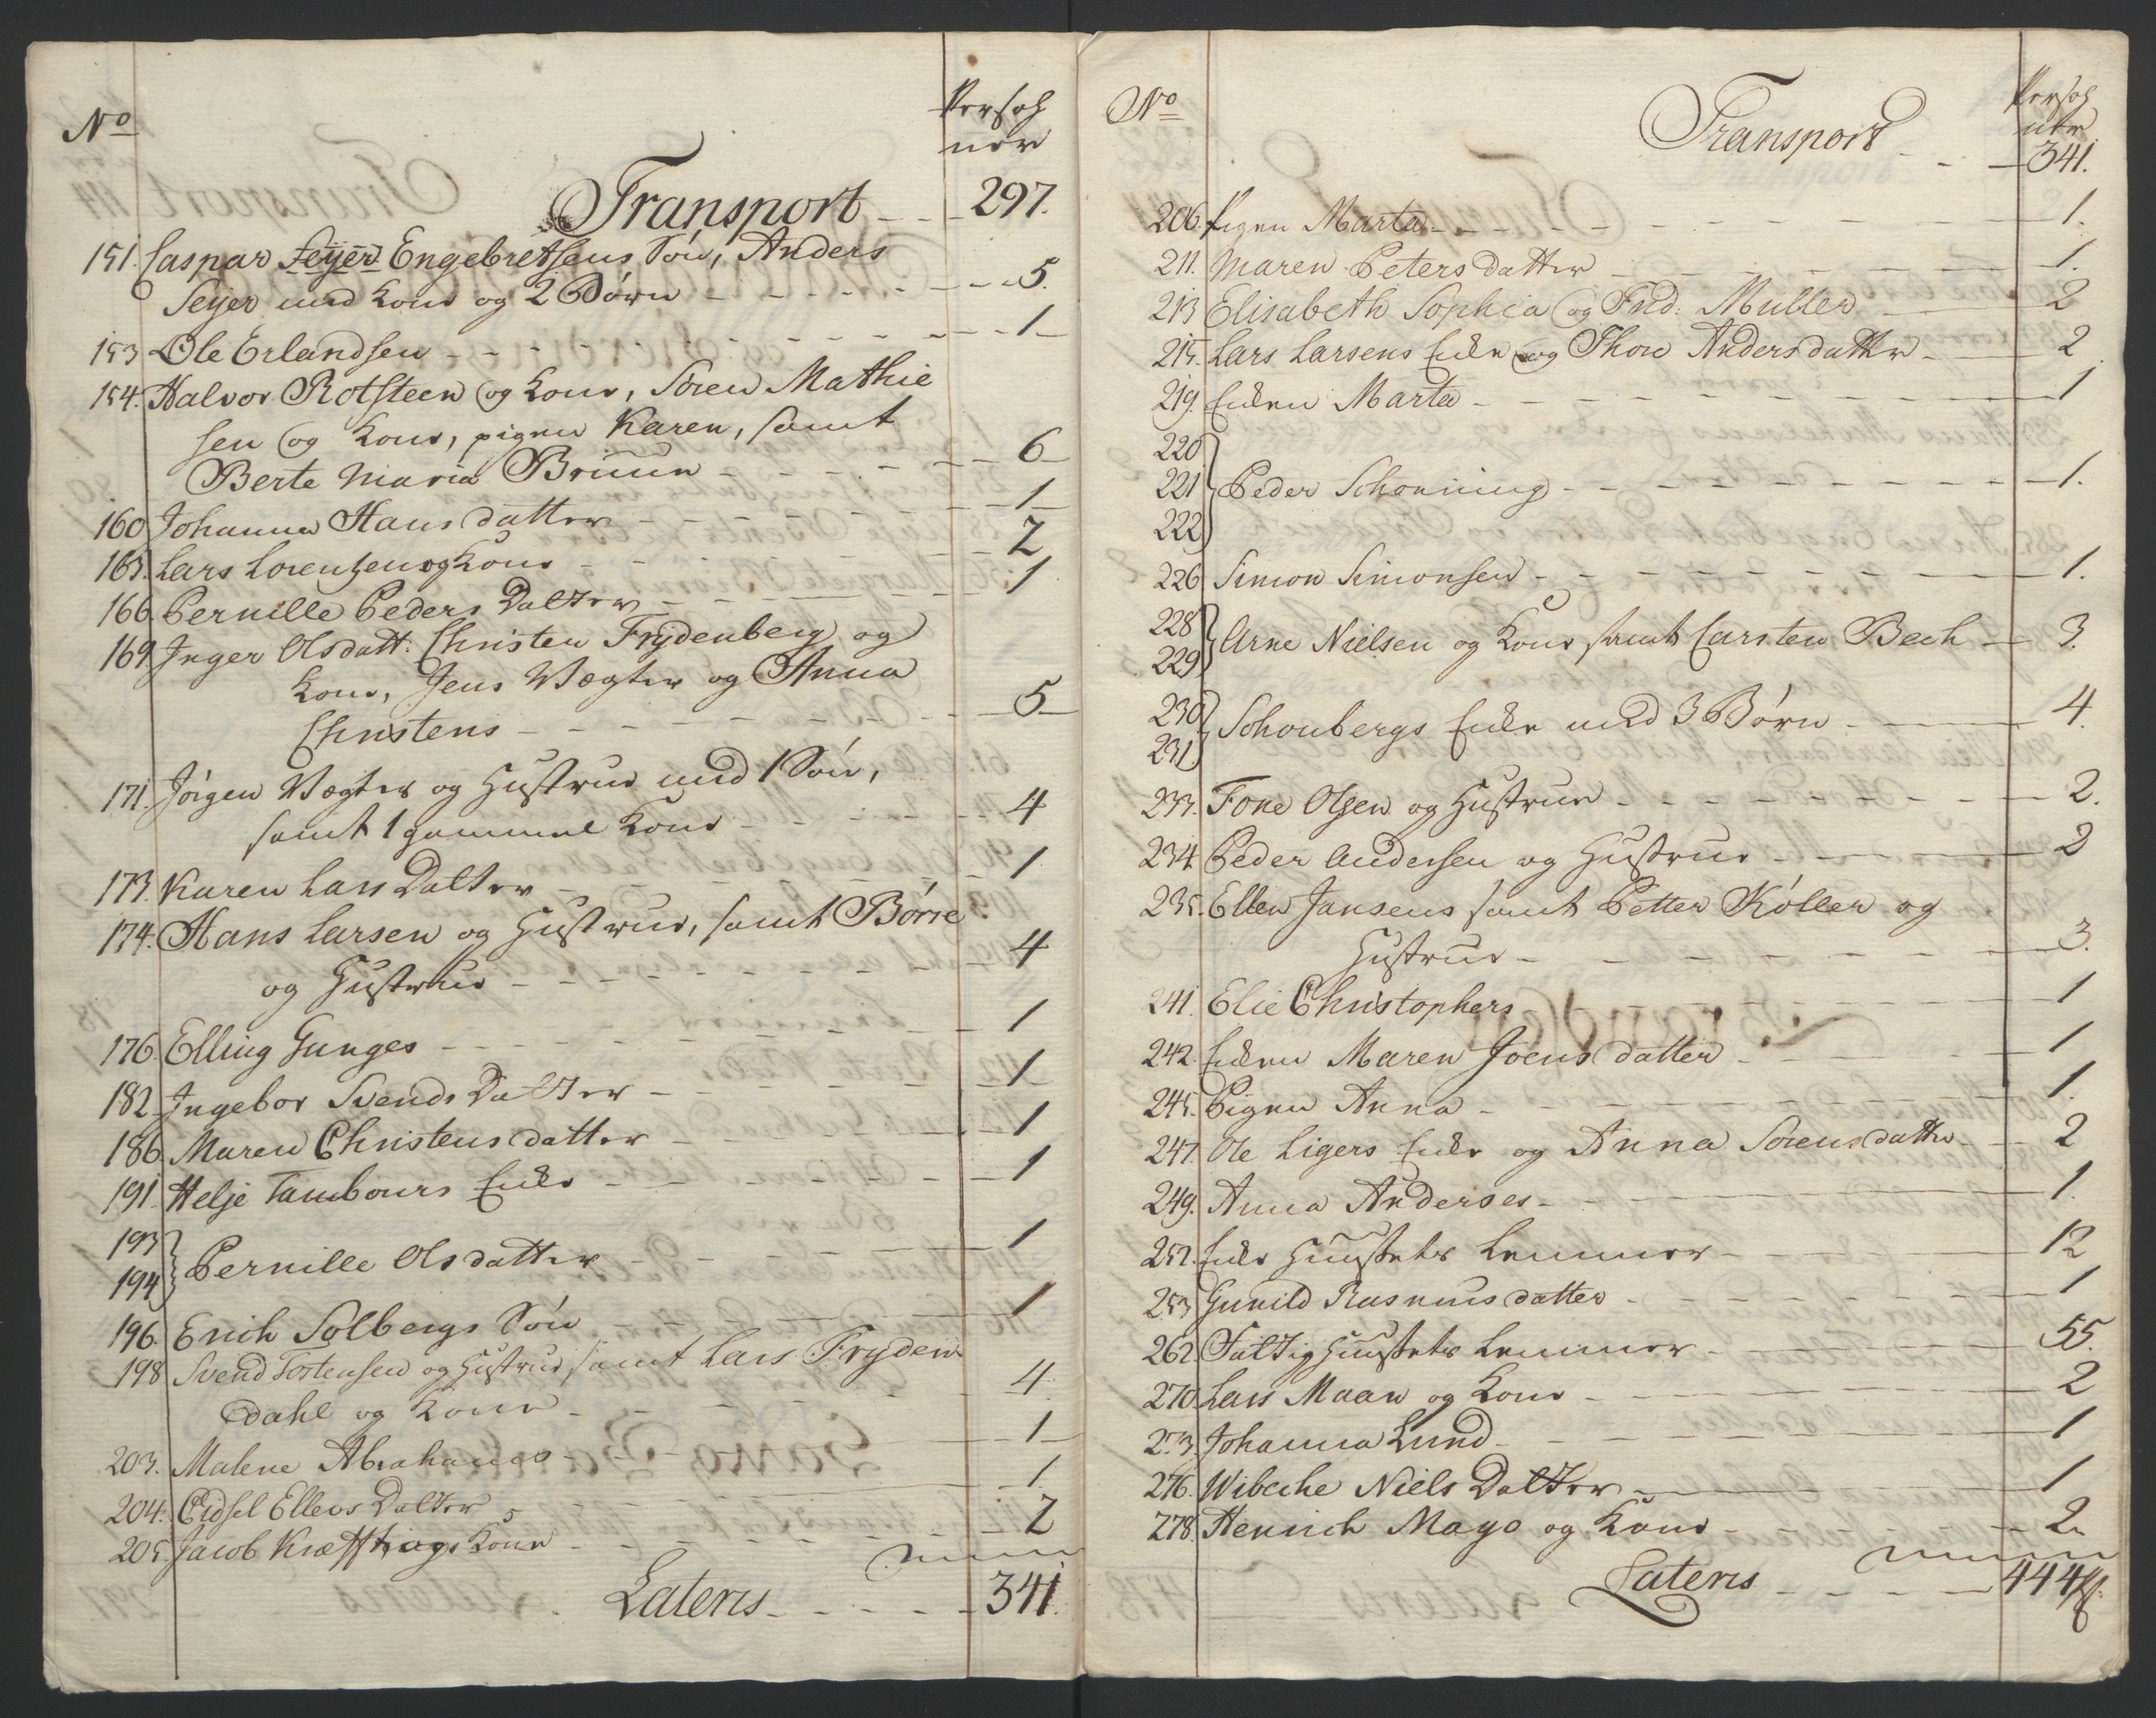 No
Persoh
ner
Transport - - - 297.
151. Caspar Seyer Engebretsens Søn, Anders
Seyer med Kone og 2 Børn - - - - - 5.
153 Ole Erlandsen - - - - - 1
154. Halvor Rotsteen og Kone, Søren Mathie
sen og Kone, pigen Karen, samt
Berte Maria Bruun - - - - 6
160 Johanna Hansdatter - - - - - 1
163. Lars Lorentzen og Kone - - - - 2
166. Pernille Peders Datter - - - - 1
169 Inger Olsdatt: Christen Frydenberg og
Kone, Jens Vægter og Anna
Christens - - - - - 5
171. Jørgen Vægter og Hustrue med 1 Søn,
samt 1 gammel Kone - - - - 4
173. Karen Lars Datter - - - - 1
174. Hans Larsen og Hustrue, samt Børre
og Hustrue - - - - - 4
176. Elling Gunges - - - - - 1
182. Ingebor Svends Datter - - - - 1
186 Maren Christensdatter - - - - 1
191. Helje Tambours Enke - - - - 1
193
194 } Pernille Olsdatter - - - - 1
196. Erich Solbergs Søn - - - - 1
198 Svend Tostensen og Hustrue, samt Lars Fryden
dahl og Kone - - - - 4
203. Malene Abrahams - - - - 1
204. Eidsel Ellevs Datter - - - - 1.
205. Jacob Kræftings Kone - - - - 2
Lateris - - - - - 341.
No
Persoh
ner
Transport - - - 341.
206. Pigen Marta - - - - - 1.
211. Maren Petersdatter - - - - 1.
213 Elisabeth Sophia og Frid: Müller - - 2
215. Lars Larsens Enke og Thore Andersdatter - 2
219. Enken Marta - - - - - 1
220
221 } Peder Schonning - - - - - 1.
222
226 Simon Simonsen - - - - - 1.
228
229 } Arne Nielsen og Kone samt Carsten Bech - 3.
230
231 } Schonbergs Enke med 3 Børn - - - 4.
233. Tore Olsen og Hustrue - - - - 2.
234 Peder Andersen og Hustrue - - - 2
235. Ellen Jansens samt Petter Køller og
Hustrue - - - - - 3.
241. Elie Christophers - - - - 1
242. Enken Maren Joensdatter - - - 1
245. Pigen Anna - - - - - 1.
247. Ole Ligers Enke og Anna Sørensdatter - - 2
249. Anna Anderses - - - - 1.
252. Enke Huusets Lemmer - - - 12
253 Gunild Rasmusdatter - - - - 1
262. Fattig Huusets Lemmer - - - 55.
270. Lars Maan og Kone - - - - 2
273. Johanna Lund - - - - - 1
276. Wibeche Niels Datter - - - 1
278. Henrich Mayo og Kone - - - - 2.
Lateris - - - - 444